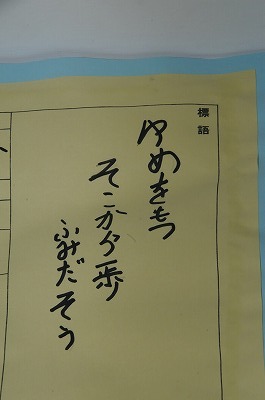 標語
ゆめをもつ
そこから一歩
ふみだそう